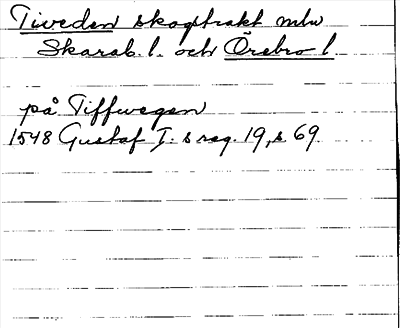 Tiveden skogstrakt mln
Skarab. l. och Örebro l.
på Tiffwegen
1548 Gustaf I:s reg. 19, s 69.